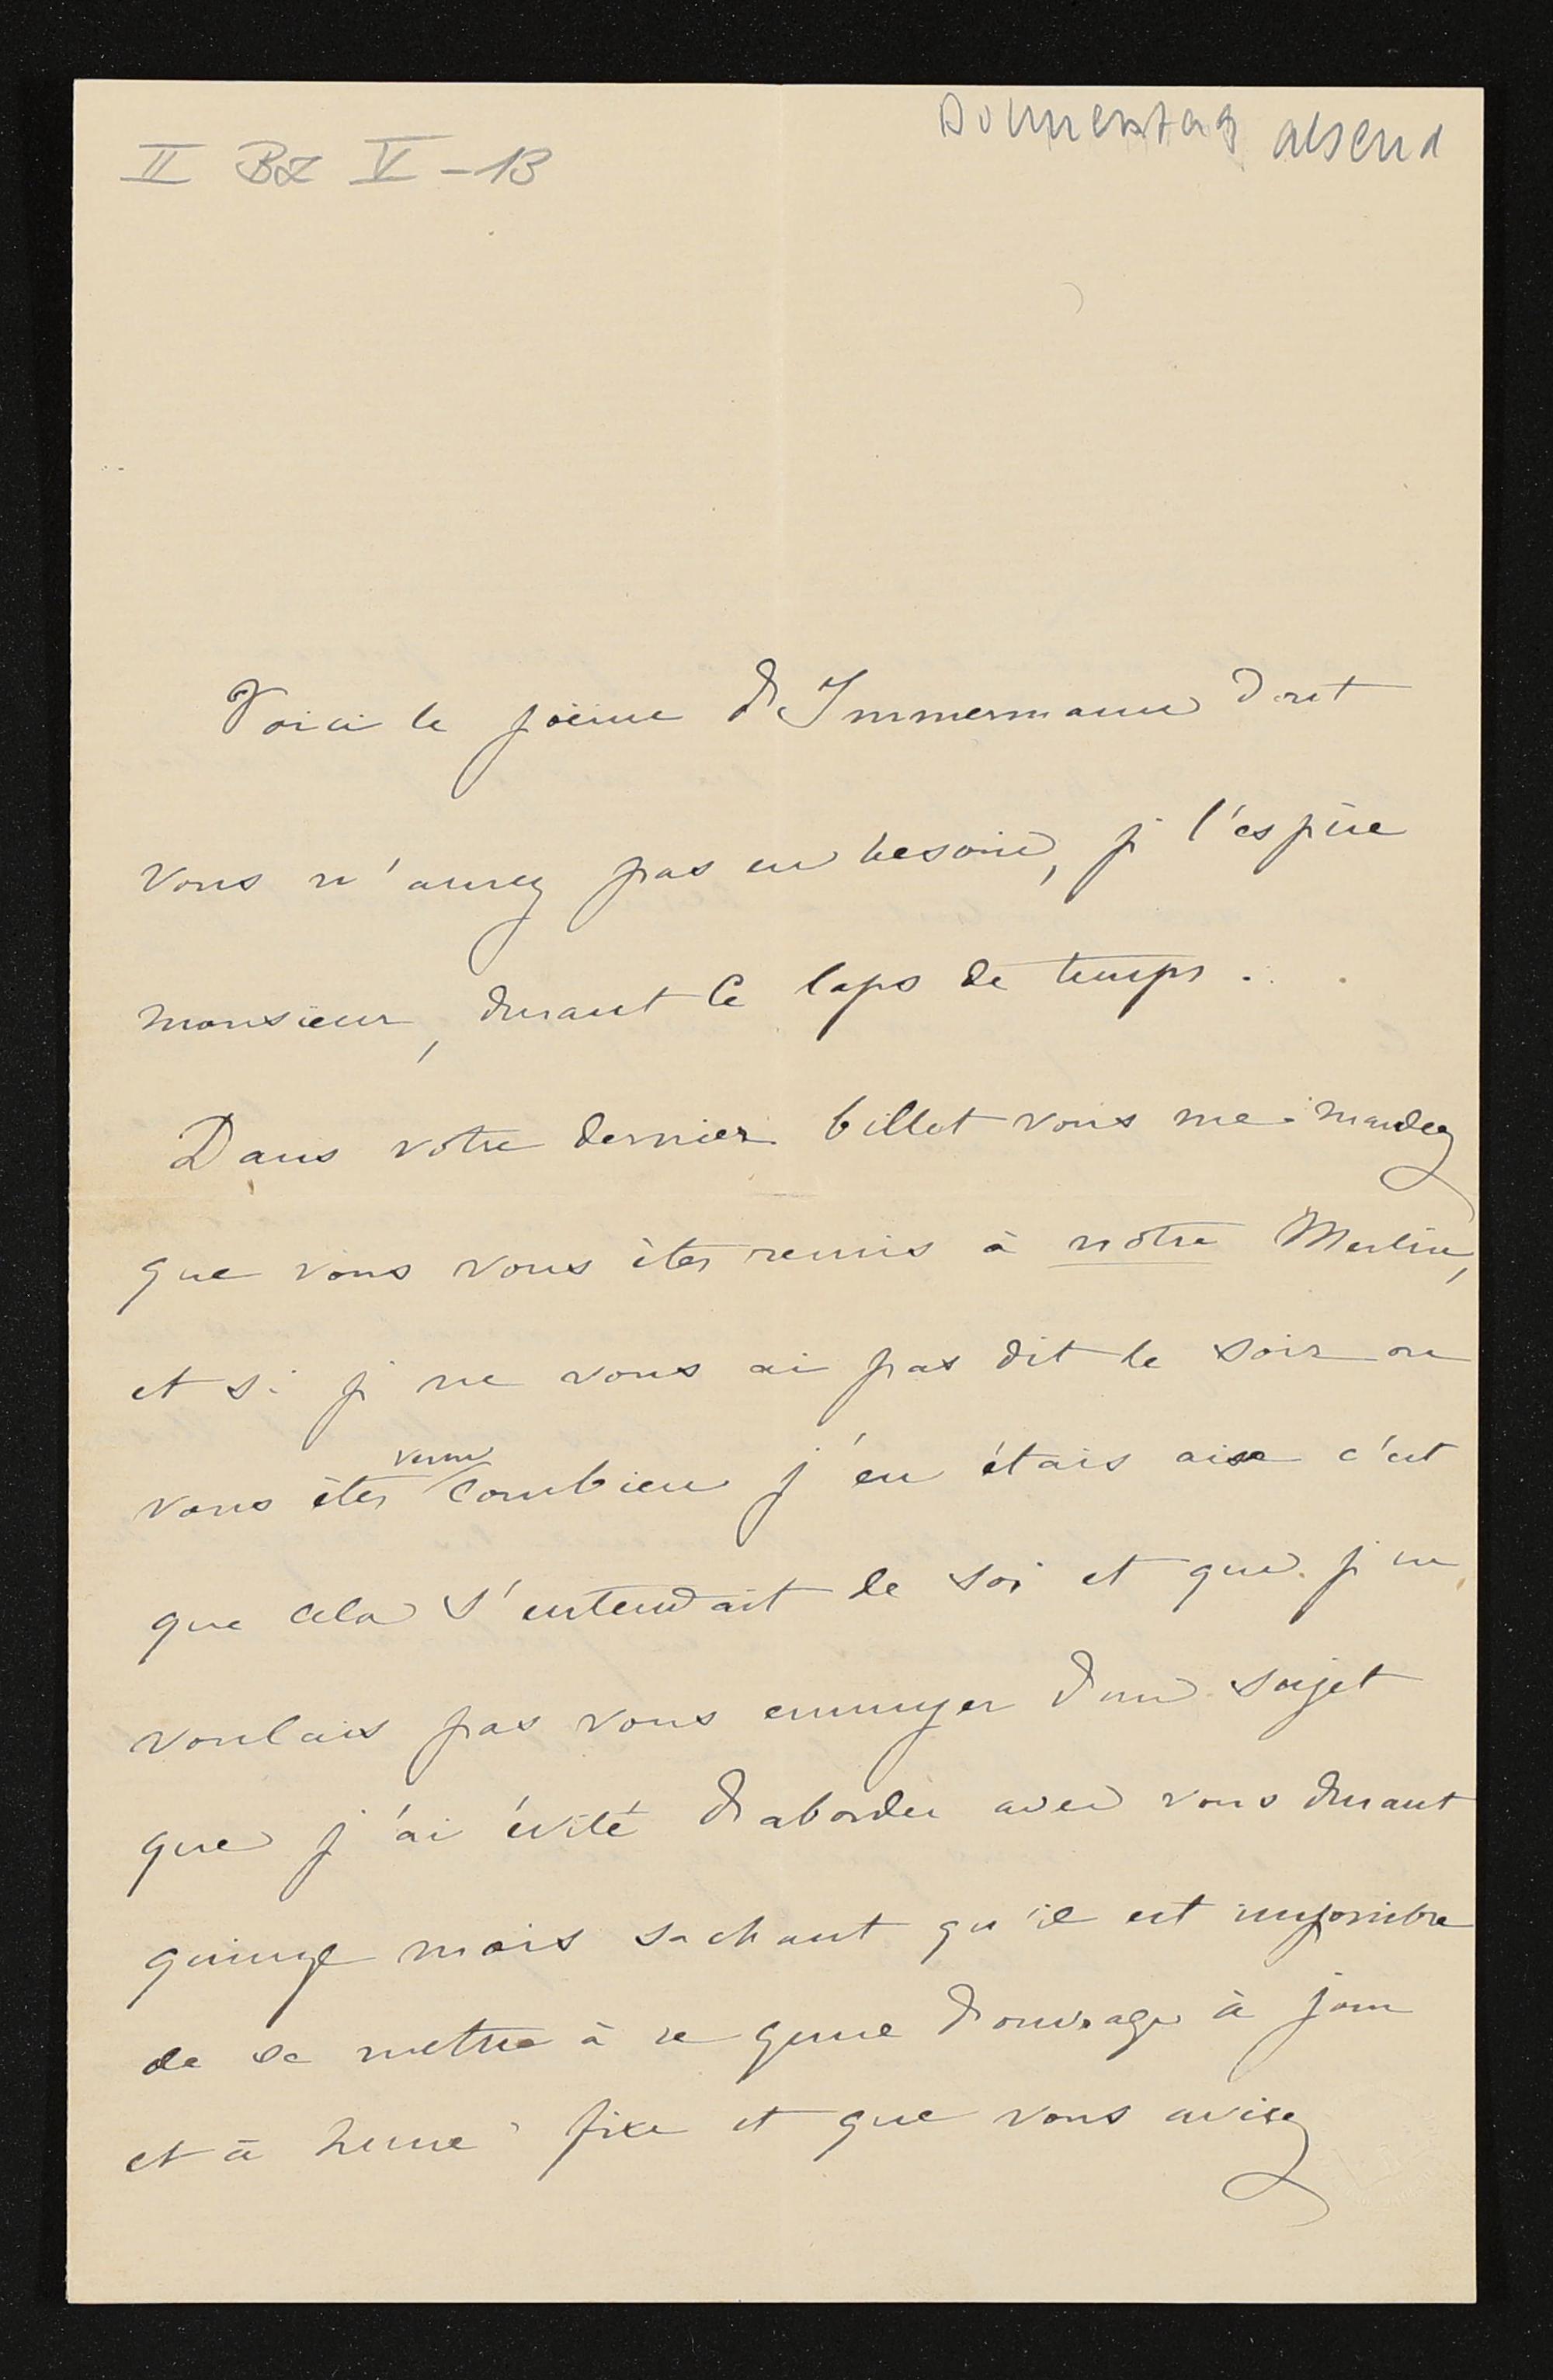 II BZ V-13
Donnerstag abend
Voici le poème d'Immermann dont
vous n'aurez pas eu besoin, je l'espère
monsieur, durant ce laps de temps.
Dans votre dernier billet vous me mandez
que vous vous êtes remis à notre Merlin,
et si je ne vous ai pas dit le soir où
vous êtes venu combien j'en étais aise c'est
que cela s'entendait de soi et que je ne
voulais pas vous ennuyer d'un sujet
que j'ai évité d'aborder avec vous durant
quinze mois sachant qu'il est impossible
de se mettre à ce genre d'ouvrage à jour
et à heure fixe et que vous avisez